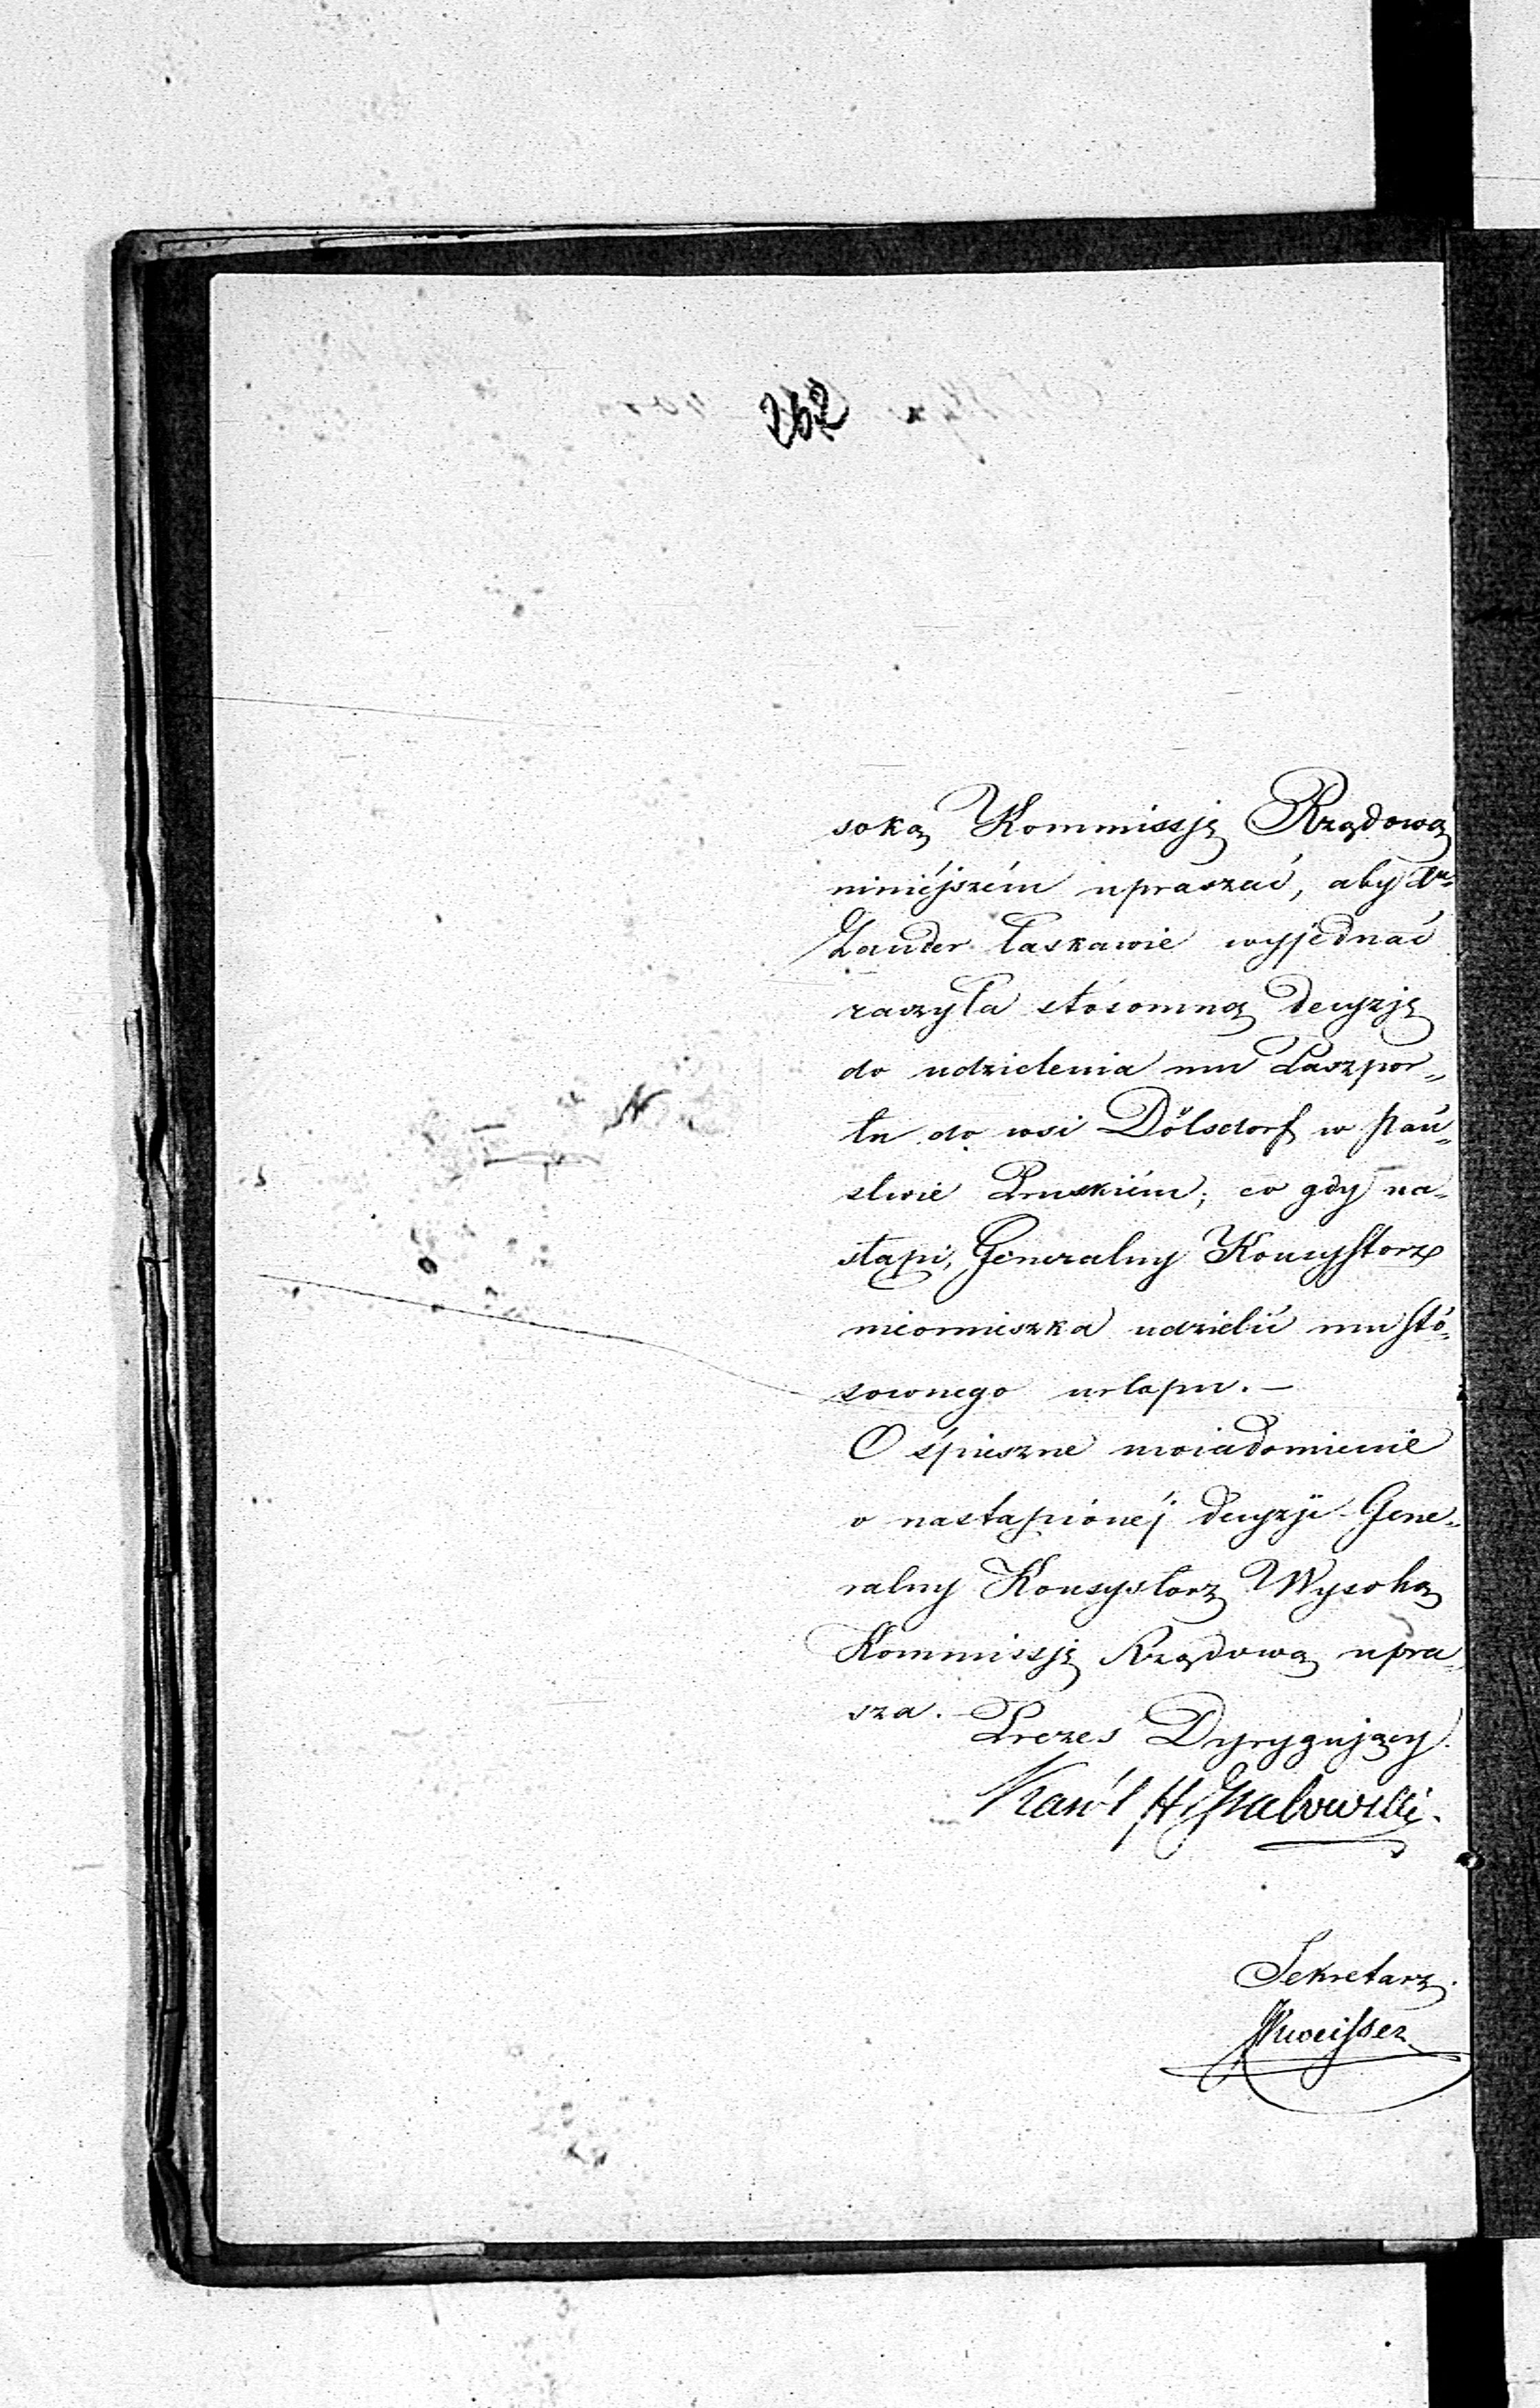 262
soką Kommissję Rządową
niniéjszém upraszać, aby Xu
Zander łaskawie wyjednać
raczyła stósowną decyzję
do udzielenia mu Paszpor„
tu do wsi Dölsdorf w Pań„
stwie Pruskiém; co gdy na„
stąpi, Generalny Konsystorz
nieomieszka udzielić mu stó„
sownego urlopu. —
O śpieszne uwiadomienie
o nastąpionéj decyzji Gene„
ralny Konsystorz Wysoką
Kommissję Rządową upra„
sza. —
Prezes Dyrygujący.
Karól H
Sekretarz.